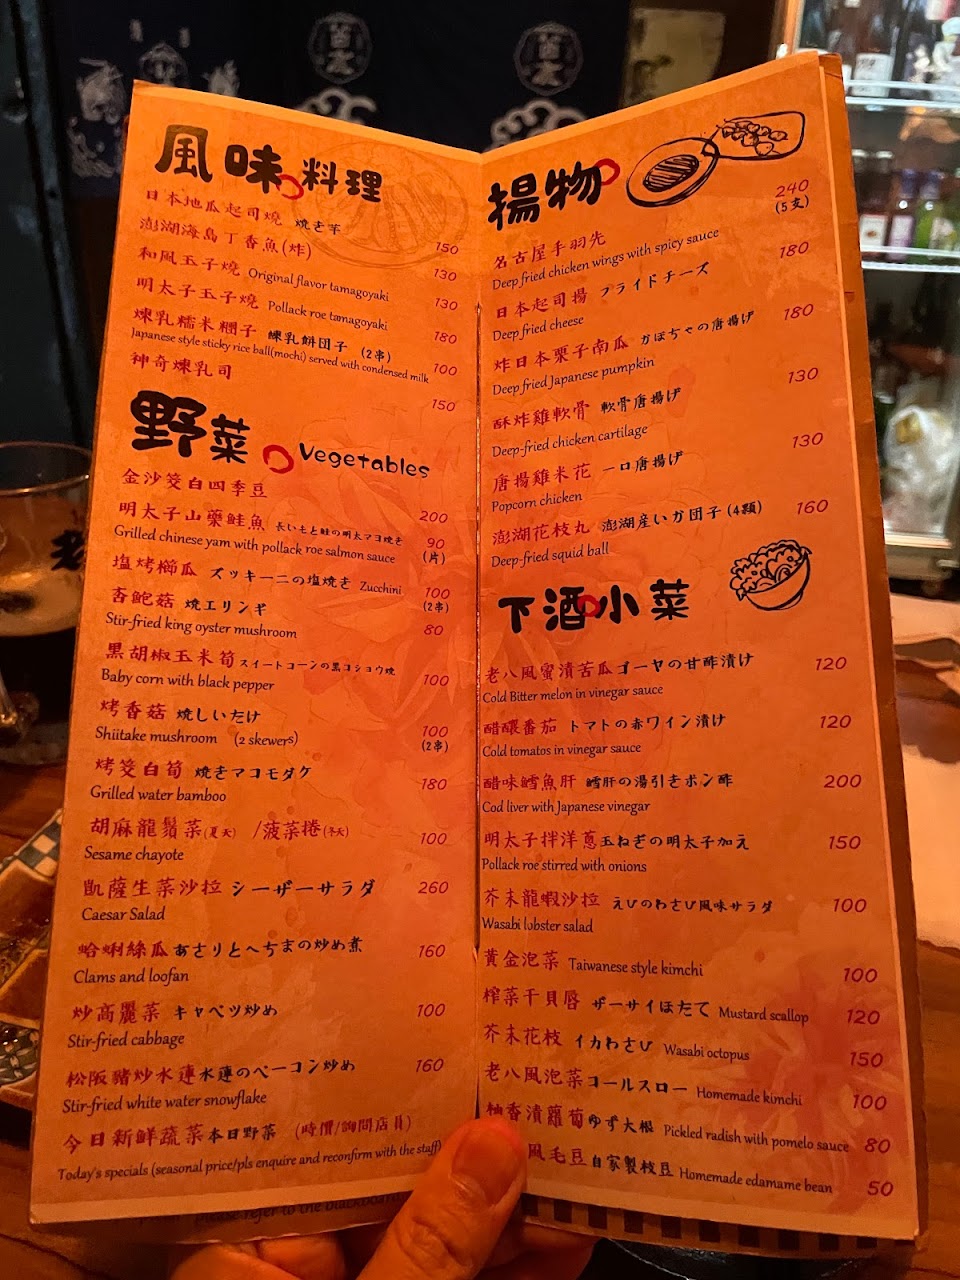 風味料理
日本地瓜起司燒 焼き芋 150
澎湖海島丁香魚(炸) 130
和風玉子燒 Original flavor tamagoyaki 130
明太子玉子燒 Pollack roe tamagoyaki 180
煉乳糯米糰子 練乳餅団子 (2串) 100
Japanese style sticky rice ball(mochi) served with condensed milk
神奇煉乳司 150
野菜 Vegetables
金沙筊白四季豆 200
明太子山藥鮭魚 長いもと鮭の明太マヨ焼き 90
Grilled chinese yam with pollack roe salmon sauce (片)
塩烤櫛瓜 ズッキーニの塩焼き Zucchini 100
(2串)
杏鮑菇 焼エリンギ 80
Stir-fried king oyster mushroom
黒胡椒玉米筍 スイートコーンの黒コショウ焼 100
Baby corn with black pepper
烤香菇 焼しいたけ 100
Shiitake mushroom (2 skewers) (2串)
烤筊白筍 焼きマコモダケ 180
Grilled water bamboo
胡麻龍鬚菜(夏天) /菠菜捲(冬天) 100
Sesame chayote
凱薩生菜沙拉 シーザーサラダ 260
Caesar Salad
蛤蜊絲瓜 あさりとへちまの炒め煮 160
Clams and loofan
炒高麗菜 キャベツ炒め 100
Stir-fried cabbage
松阪豬炒水蓮 水蓮のベーコン炒め 160
Stir-fried white water snowflake
今日新鮮蔬菜 本日野菜 (時價/詢問店員)
Today's specials (seasonal price/pls enquire and reconfirm with the staff)
please refer to the blackboard
揚物
240
(5支)
名古屋手羽先
Deep fried chicken wings with spicy sauce
日本起司揚 フライドチーズ 180
Deep fried cheese
炸日本栗子南瓜 かぼちゃの唐揚げ 180
Deep fried Japanese pumpkin
酥炸雞軟骨 軟骨唐揚げ 130
Deep-fried chicken cartilage
唐揚雞米花 一口唐揚げ 130
Popcorn chicken
澎湖花枝丸 澎湖産いか団子(4顆) 160
Deep-fried squid ball
下酒小菜
老八風蜜漬苦瓜 ゴーヤの甘酢漬け 120
Cold Bitter melon in vinegar sauce
醋釀番茄 トマトの赤ワイン漬け 120
Cold tomatos in vinegar sauce
醋味鱈魚肝 鱈肝の湯引きポン酢 200
Cod liver with Japanese vinegar
明太子拌洋蔥 玉ねぎの明太子加え 150
Pollack roe stirred with onions
芥末龍蝦沙拉 えびのわさび風味サラダ 100
Wasabi lobster salad
黃金泡菜 Taiwanese style kimchi 100
榨菜干貝唇 ザーサイほたて Mustard scallop 120
芥末花枝 イカわさび Wasabi octopus 150
老八風泡菜 コールスロー Homemade kimchi 100
柚香漬蘿蔔 ゆず大根 Pickled radish with pomelo sauce 80
風毛豆 自家製枝豆 Homemade edamame bean 50